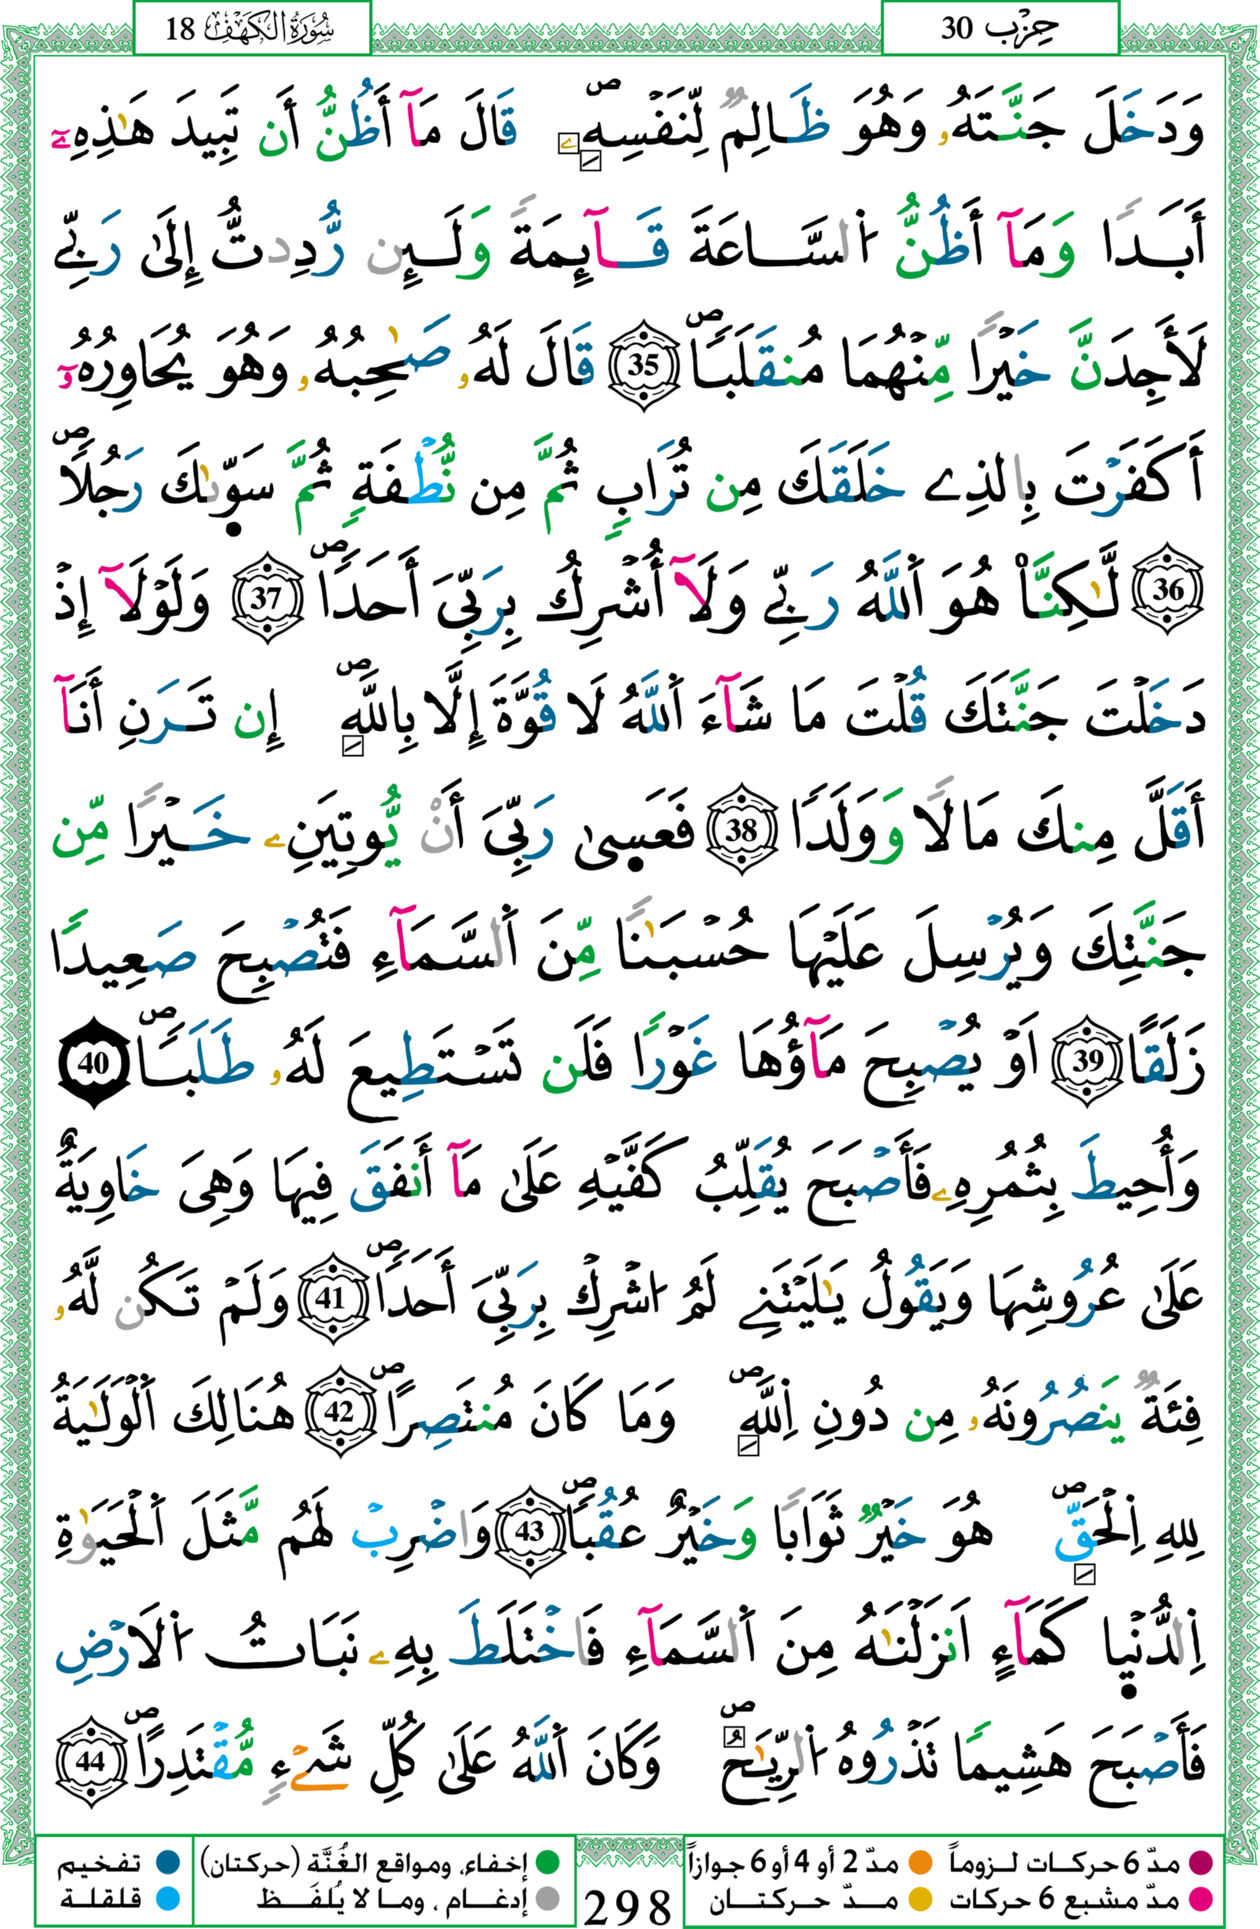 سُورَةُ الكَهْفِ 18
حِزْب 30
وَدَخَلَ جَنَّتَهُۥ وَهُوَ ظَالِمٞ لِّنَفْسِهِۦ ۖ قَالَ مَآ أَظُنُّ أَن تَبِيدَ هَٰذِهِۦٓ
أَبَدٗا وَمَآ أَظُنُّ اُ۬لسَّاعَةَ قَآئِمَةٗ وَلَئِن رُّدِدتُّ إِلَىٰ رَبِّے
لَأَجِدَنَّ خَيْرٗا مِّنْهُمَا مُنقَلَبٗاۖ 35 قَالَ لَهُۥ صَٰحِبُهُۥ وَهُوَ يُحَاوِرُهُۥٓ
أَكَفَرْتَ بِالذِے خَلَقَكَ مِن تُرَابٖ ثُمَّ مِن نُّطْفَةٖ ثُمَّ سَوّ۪يٰكَ رَجُلٗاۖ
36 لَّٰكِنَّا۠ هُوَ اَ۬للَّهُ رَبِّے وَلَآ أُشْرِكُ بِرَبِّيَ أَحَدٗاۖ 37 وَلَوْلَآ إِذْ
دَخَلْتَ جَنَّتَكَ قُلْتَ مَا شَآءَ اَ۬للَّهُ لَا قُوَّةَ إِلَّا بِاللَّهِۖ إِن تَرَنِ أَنَآ
أَقَلَّ مِنكَ مَالٗا وَوَلَدٗا 38 فَعَس۪يٰ رَبِّيَ أَنْ يُّوتِيَنِۦ خَيْرٗا مِّن
جَنَّتِكَ وَيُرْسِلَ عَلَيْهَا حُسْبَٰنٗا مِّنَ اَ۬لسَّمَآءِ فَتُصْبِحَ صَعِيدٗا
زَلَقًا 39 اَوْ يُصْبِحَ مَآؤُهَا غَوْرٗا فَلَن تَسْتَطِيعَ لَهُۥ طَلَبٗاۖ 40
وَأُحِيطَ بِثُمُرِهِۦ فَأَصْبَحَ يُقَلِّبُ كَفَّيْهِ عَلَىٰ مَآ أَنفَقَ فِيهَا وَهِيَ خَاوِيَةٌ
عَلَىٰ عُرُوشِهَا وَيَقُولُ يَٰلَيْتَنِے لَمُ اُشْرِكْ بِرَبِّيَ أَحَدٗاۖ 41 وَلَمْ تَكُن لَّهُۥ
فِئَةٞ يَنصُرُونَهُۥ مِن دُونِ اِ۬للَّهِۖ وَمَا كَانَ مُنتَصِرًاۖ 42 هُنَالِكَ اَ۬لْوَلَٰيَةُ
لِلهِ اِ۬لْحَقِّۖ هُوَ خَيْرٞ ثَوَابٗا وَخَيْرٌ عُقُبٗاۖ 43 وَاضْرِبْ لَهُم مَّثَلَ اَ۬لْحَيَوٰةِ
اِ۬لدُّنْي۪ا كَمَآءٍ اَنزَلْنَٰهُ مِنَ اَ۬لسَّمَآءِ فَاخْتَلَطَ بِهِۦ نَبَاتُ اُ۬لَارْضِ
فَأَصْبَحَ هَشِيمٗا تَذْرُوهُ اُ۬لرِّيَٰحُۖ وَكَانَ اَ۬للَّهُ عَلَىٰ كُلِّ شَےْءٖ مُّقْتَدِرًاۖ 44
مدّ 6 حركات لـزومـاً
مدّ 2 أو 4 أو 6 جوازاً
إخفاء، ومواقع الغُنَّة (حركتان)
تفخيم
مدّ مشبع 6 حركات
مـدّ حـركتـان
إدغـام ، ومـا لا يُلفَـظ
قلقلـة
298